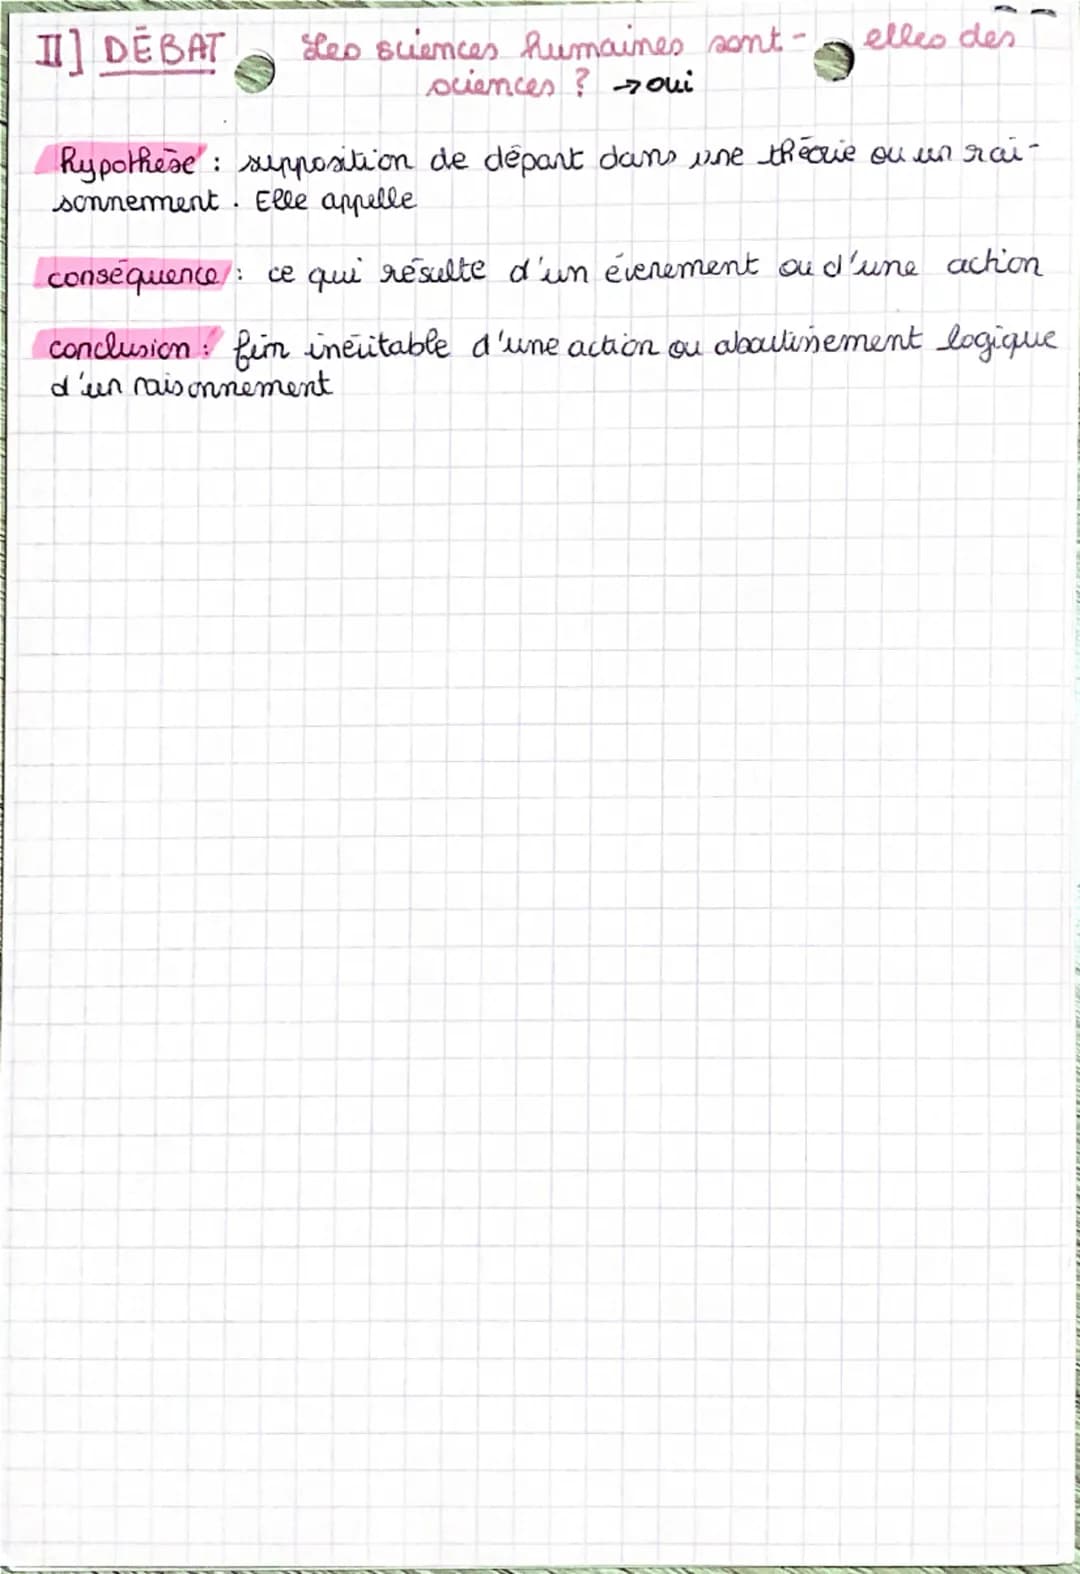 II] DÉBAT Les sciences humaines sont - elles des
sciences ? → oui
hypothèse : supposition de départ dans une théorie ou un rai-
sonnement. Elle appelle
conséquence : ce qui résulte d'un évenement ou d'une action
conclusion : fin inévitable d'une action ou aboutissement logique
d'un raisonnement